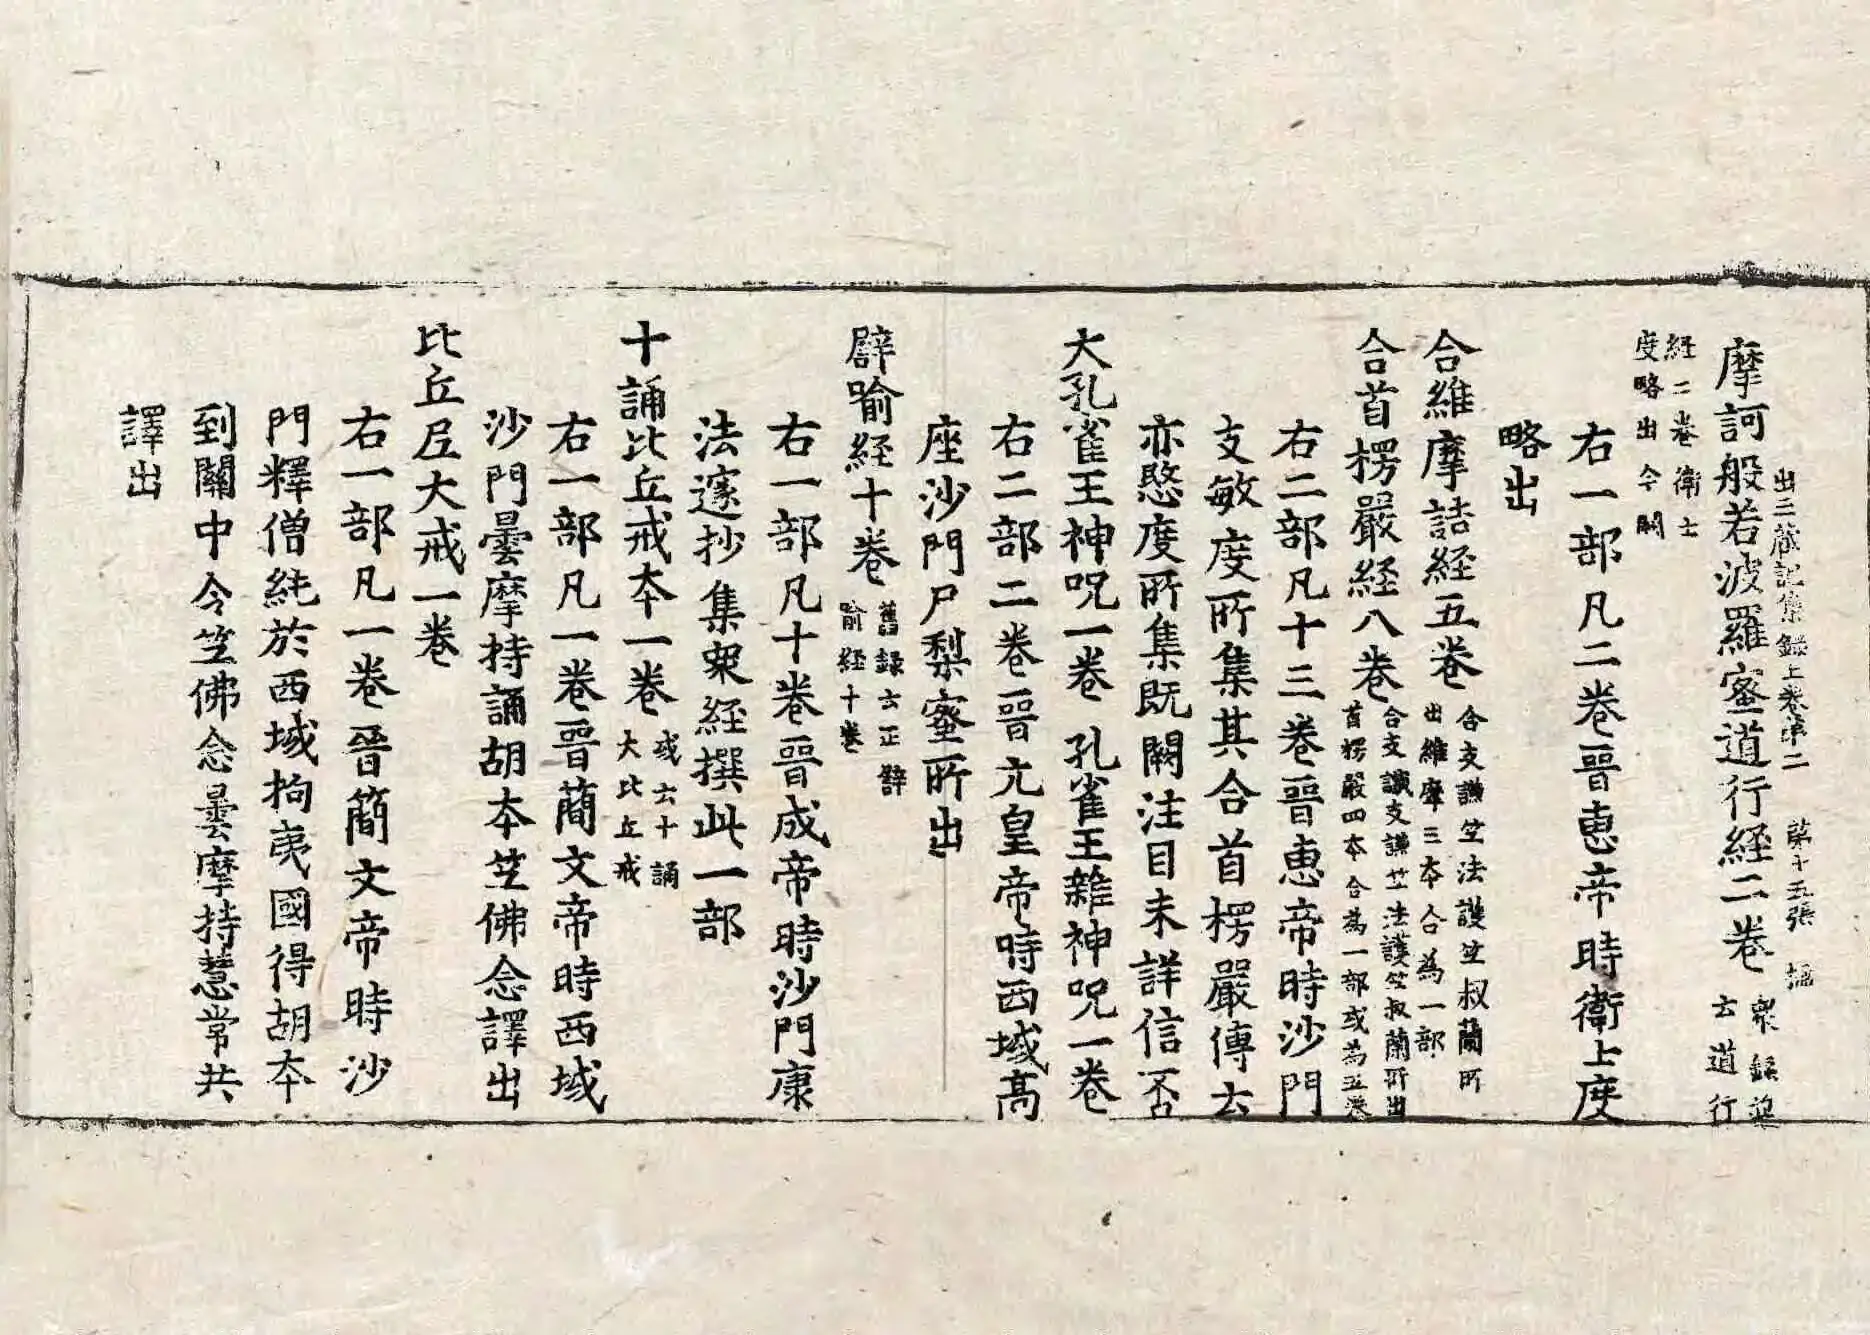 出三蔵記集録上巻第二 第十五張
摩訶般若波羅蜜道行経二卷 衆録並云道行
経二卷衛士度略出今闕
右一部凡二卷晉惠帝時衛士度
略出
合維摩詰経五卷 合支謙竺法護竺叔蘭所出維摩三本合為一部
合首楞嚴経八卷 合支讖支謙竺法護竺叔蘭所出首楞嚴四本合為一部或為五卷
右二部凡十三卷晉惠帝時沙門
支敏度所集其合首楞嚴傳云
亦愍度所集既闕注目未詳信否
大孔雀王神呪一卷 孔雀王雜神呪一卷
右二部二卷晉元皇帝時西域高
座沙門尸梨蜜所出
譬喻経十卷 舊録云正譬喻経十卷
右一部凡十卷晉成帝時沙門康
法邃抄集衆経撰此一部
十誦比丘戒本一卷 或云十誦大比丘戒
右一部凡一卷晉蕳文帝時西域
沙門曇摩持誦胡本竺佛念譯出
比丘尼大戒一卷
右一部凡一卷晉簡文帝時沙
門釋僧純於西域拘夷國得胡本
到關中令竺佛念曇摩持慧常共
譯出